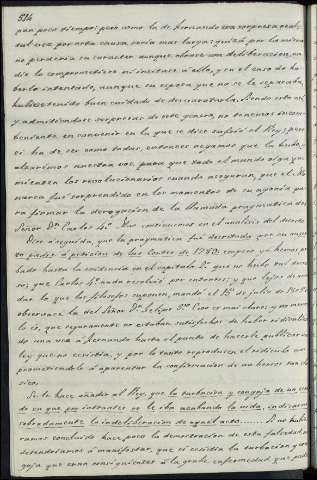 524
por poco tiempo; pero como la de fernando era sorpresa real,
tal vez por esta causa seria mas larga; quizá por la misma
no perderia su caracter aunque obrase con deliberacion, na-
die lo comprometiese ni incitase a ello, y en el caso de ha-
berlo intentado, aunque su esposa que no se le separaba,
hubiese tenido buen cuidado de desviarlo. Siendo esto así
y admitiendose sorpresas de este género, no tenemos incon-
beniente en convenir en la que se dice sufrió el Rey; pero
si ha de ser como todas, entonces
nuestra voz, para que todo el mundo oiga que
mienten los revolucionarios cuando aseguran, que el Mo-
narca fué sorprendido en los momentos de su agonía pa-
ra firmar la derogacion de la llamada pragmatica del
Señor Dn. Carlos 4º. Mas continuemos en el analisis del decreto.
Dice o asegura, que la pragmatica fué decretada por su augus-
to padre á peticion de las cortes de 1789; empero ya hemos pro-
bado hasta la evidencia en el capitulo 2º que no hubo tal decre-
to; que Carlos 4º nada resolvió por entonces; y que lejos de man-
dar lo que los filosofos suponen, mandó el 15 de julio de 1805
observar la del Señor Dn. Felipe 5º. Eso es mas claro; y no menos
lo es, que seguramente no estaban satisfechos de haber ridiculiza-
do una vez á Fernando hasta el punto de hacerle publicar una
ley que no ecsistia, y por lo tanto reproducen el ridículo com-
prometiendolo á aparentar la confirmacion de un hecho tan
Se le hace añadir al Rey, que la turbacion y congoja de un esta-
do en que por instantes se le iba acabando la vida, indicarian
sobradamente la indeliberacion de aquel acto...... Si no hubie-
ramos concluido hace poco la demostracion de esta falsedad, nos
detendriamos á manifestar, que si ecsistia la turbacion y con-
goja que eran consiguientes á la grabe enfermedad que pade-